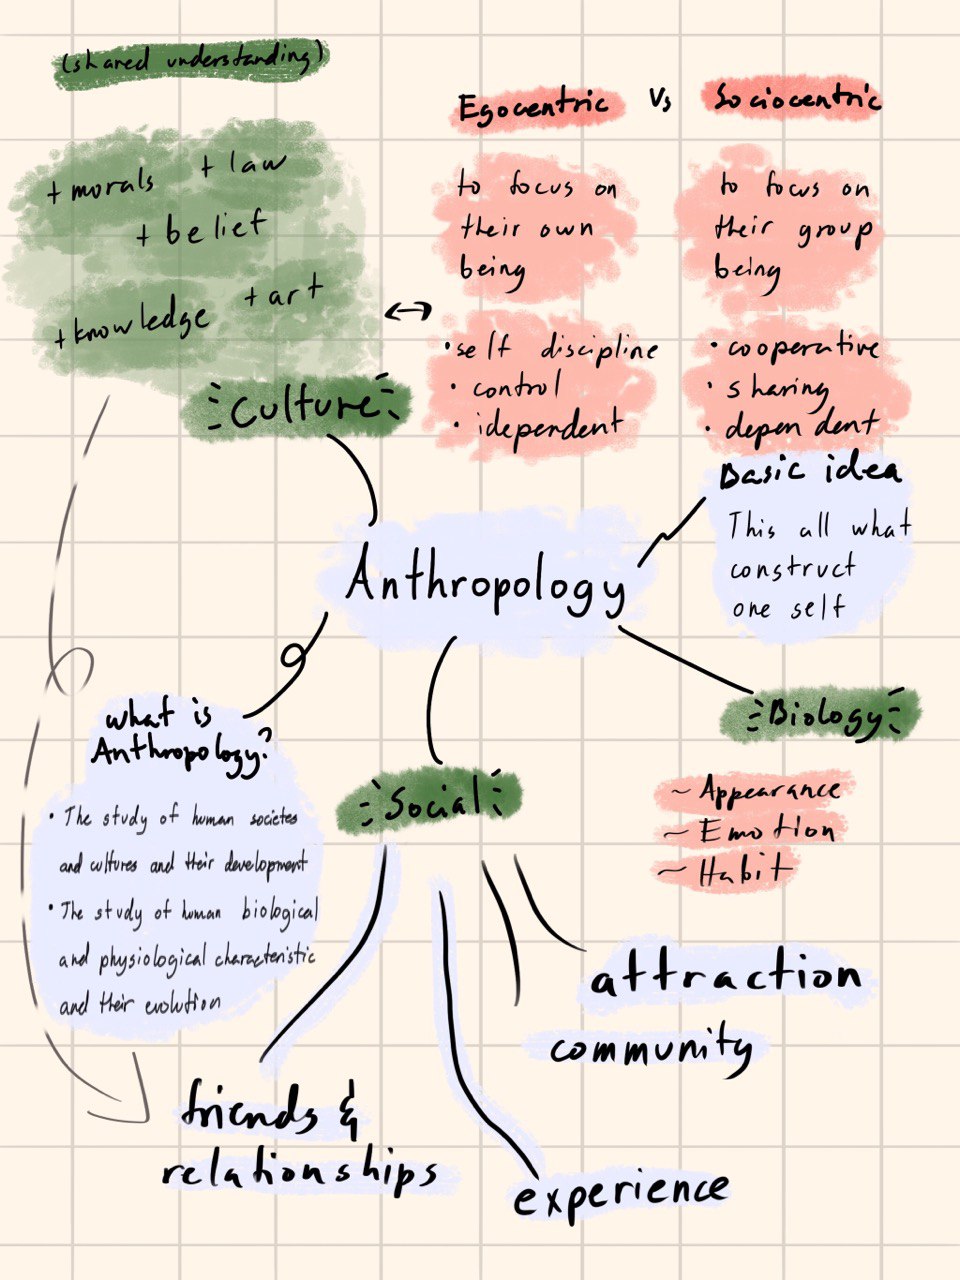 (shared understanding)
+ morals
+ law
+ belief
+ knowledge
+ art
Culture
Egocentric
Vs
Sociocentric
to focus on
their own
being
• self discipline
• control
• idependent
to focus on
their group
being
• cooperative
• sharing
• dependent
Basic idea
This all what
construct
one self
Anthropology
what is
Anthropology?
• The study of human societes
and cultures and their development
• The study of human biological
and physiological characteristic
and their evolution
Social
Biology
~ Appearance
~ Emotion
~ Habit
attraction
community
friends &
relationships
experience